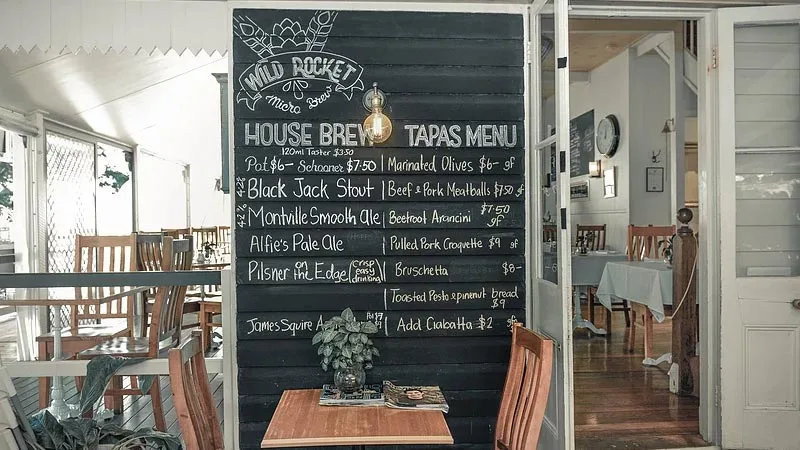 WILD ROCKET
Micro Brew
HOUSE BREW
120ml Taster $3.50
Pot $6- Schooner $7.50
Black Jack Stout
Montville Smooth Ale
Alfie's Pale Ale
Pilsner on the Edge (crisp easy drinking)
James Squire
TAPAS MENU
Marinated Olives $6- gf
Beef & Pork Meatballs $7.50 gf
Beetroot Arancini $7.50 gf
Pulled Pork Croquette $9 gf
Bruschetta $8-
Toasted Pesto & pinenut bread $9
Add Ciabatta $2